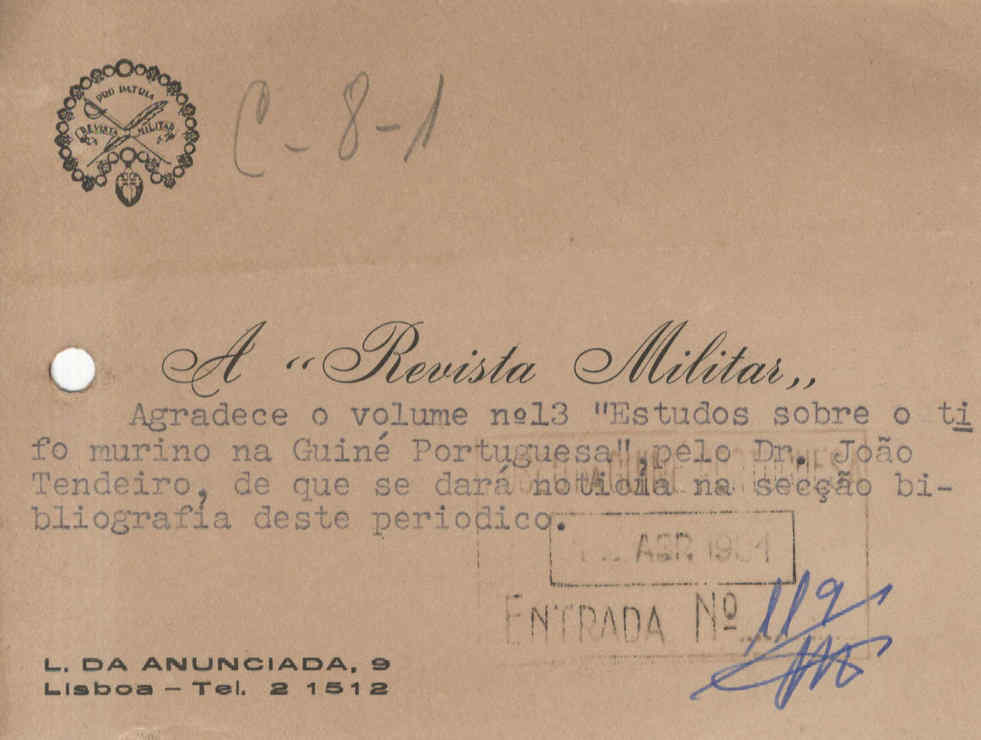 PRO PATRIA
REVISTA MILITAR
C-8-1
A "Revista Militar"
Agradece o volume nº13 "Estudos sobre o ti
fo murino na Guiné Portuguesa", pelo Dr. João
Tendeiro, de que se dará noticia na secção bi-
bliografia deste periodico.
ABR. 1951
ENTRADA Nº 119
L. DA ANUNCIADA, 9
Lisboa - Tel. 2 1512